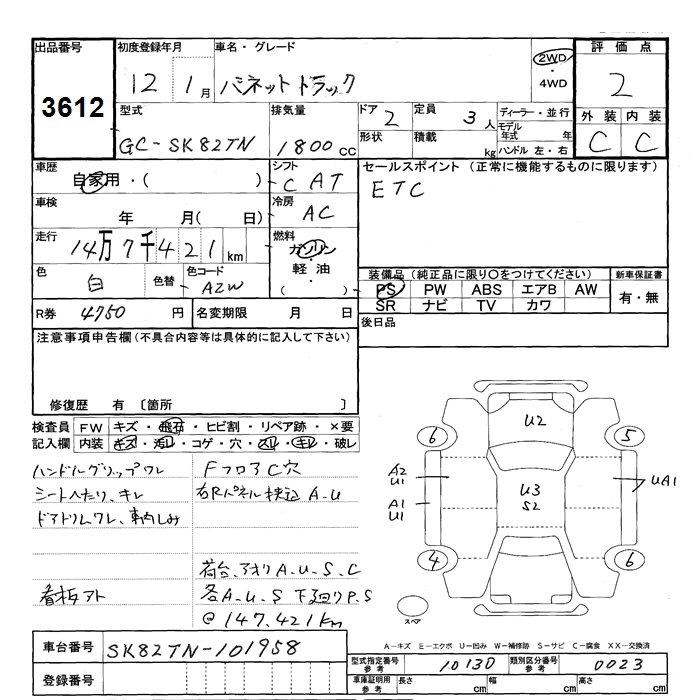 出品番号 初度登録年月 車名・グレード 評価点
3612 12 1月 バネットトラック 2WD・4WD 2
型式 排気量 ドア 2 定員 3人 ディーラー・並行 外装 内装
GC-SK82TN 1800cc 形状 積載 kg モデル年式 年 ハンドル 左・右 C C
車歴 自家用・( ) シフト C AT セールスポイント (正常に機能するものに限ります)
車検 年 月( 日) 冷房 AC ETC
走行 14万7千421km 燃料 ガソリン・軽油・( )
色 白 色替 色コード A2W 装備品 (純正品に限り○をつけてください) 新車保証書
PS PW ABS エアB AW 有・無
SR ナビ TV カワ
R券 4750円 名変期限 月 日 後日品
注意事項申告欄 (不具合内容等は具体的に記入して下さい)
修復歴 有 〔箇所 〕
検査員 FW キズ・飛石・ヒビ割・リペア跡・×要
記入欄 内装 キズ・汚レ・コゲ・穴・スレ・キレ・破レ
ハンドルグリップワレ Fフロア C穴
シートへたり、キレ 右Rパネル 検込 A-U
ドアトリムワレ、車内しみ
荷台、アオリ A-U-S-C
看板アト 各A-U-S 下廻りP.S
@147.421km
U2
6 5
A2 U1 U3 S2 UA1
A1 U1
4 6
スペア
A-キズ E-エクボ U-凹み W-補修跡 S-サビ C-腐食 XX-交換済
車台番号 SK82TN-101958
型式指定番号 参考 10130 類別区分番号 参考 0023
登録番号 車庫証明用 参考 長さ cm 幅 cm 高さ cm